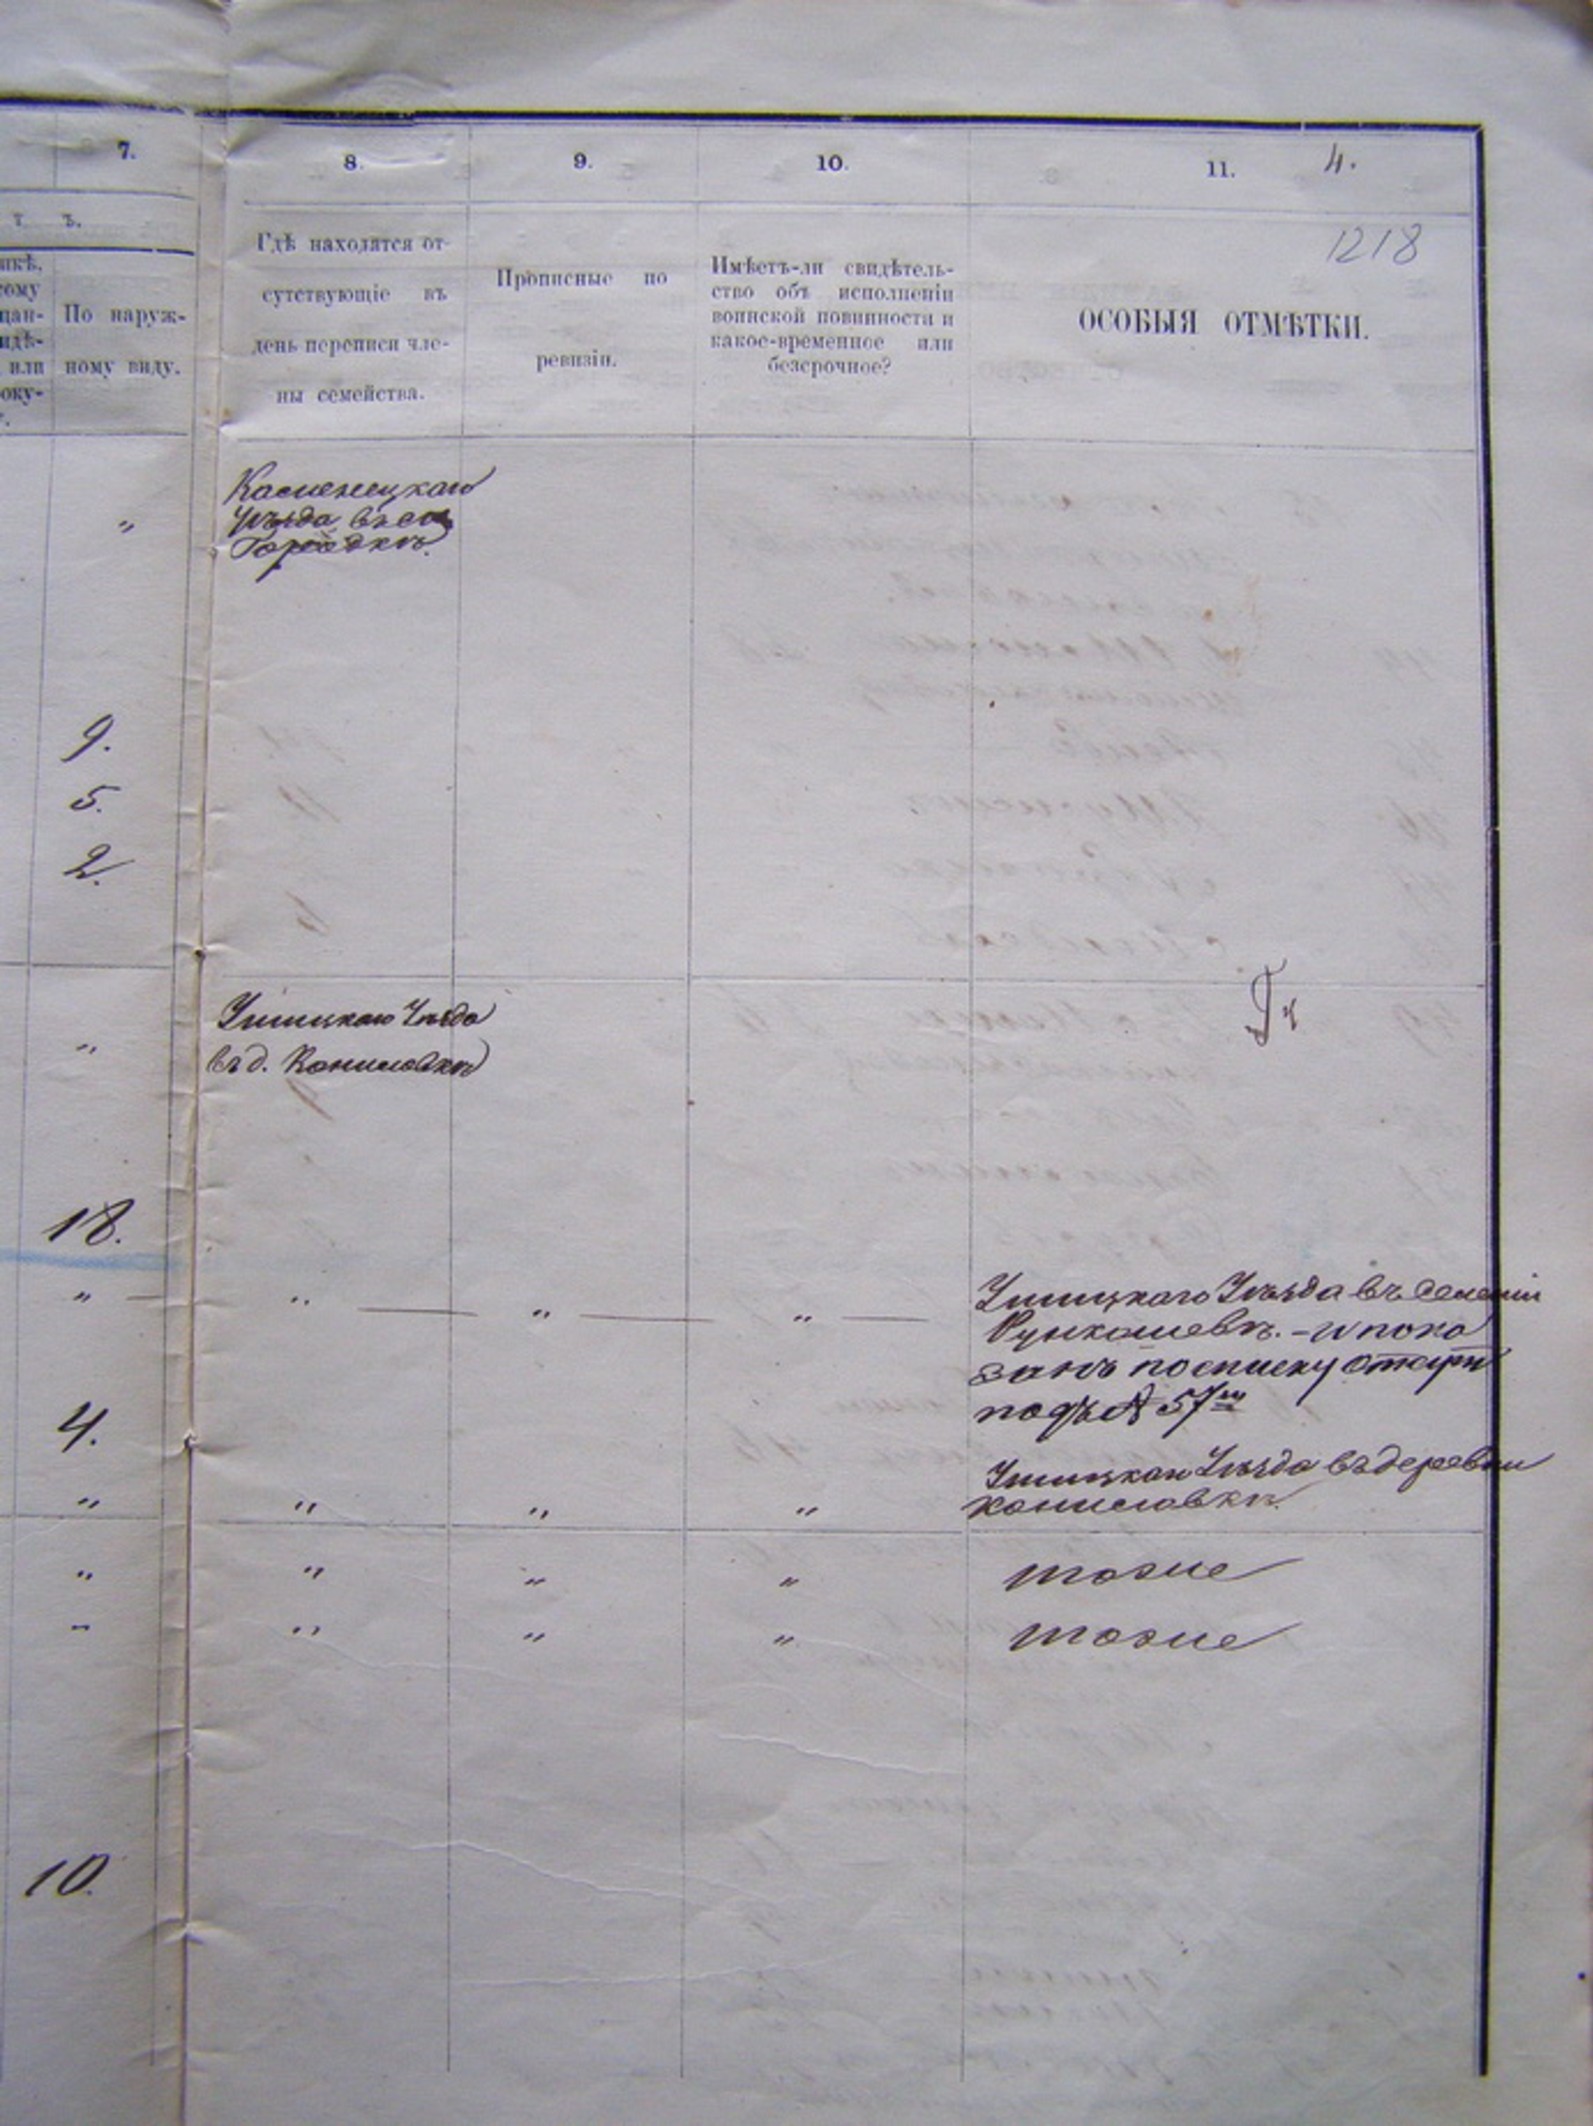 7.
8.
9.
10.
11.
4.
т ъ.
1218
По наруж-
ному виду.
Гдѣ находятся от-
сутствующіе въ
день переписи чле-
ны семейства.
Прописные по
ревизіи.
Имѣетъ-ли свидѣтель-
ство объ исполненіи
воинской повинности и
какое-временное или
безсрочное?
ОСОБЫЯ ОТМѢТКИ.
Каменецкаго
уѣзда въ
Городкѣ.
"
9.
5.
2.
Ушицкаго Уѣзда
въ д.
"
18.
" " " "
Ушицкаго Уѣзда въ селеніи
– и пока
занъ по списку
подъ № 57м
4.
Ушицкаго Уѣзда въ деревни
" " " "
" " " " тоже
" " " " тоже
10.